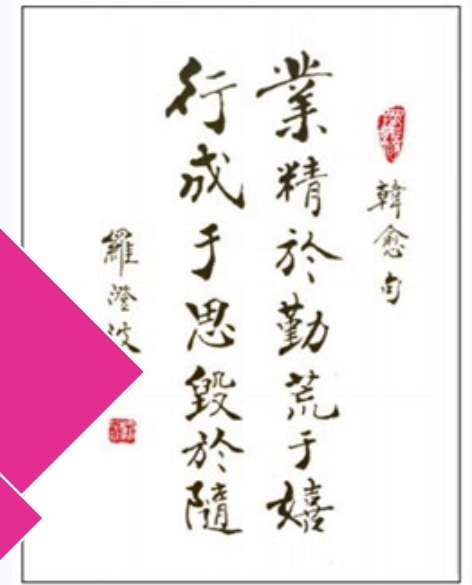 韓愈句
業精於勤荒于嬉
行成于思毀於隨
羅澄波